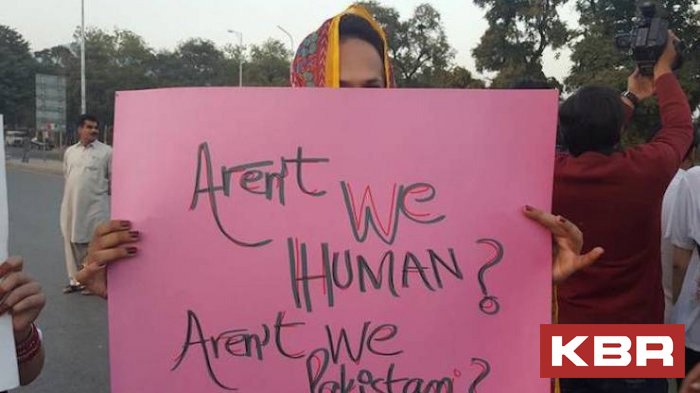 Aren't We
HUMAN?
Aren't We
Pakistani?
KBR